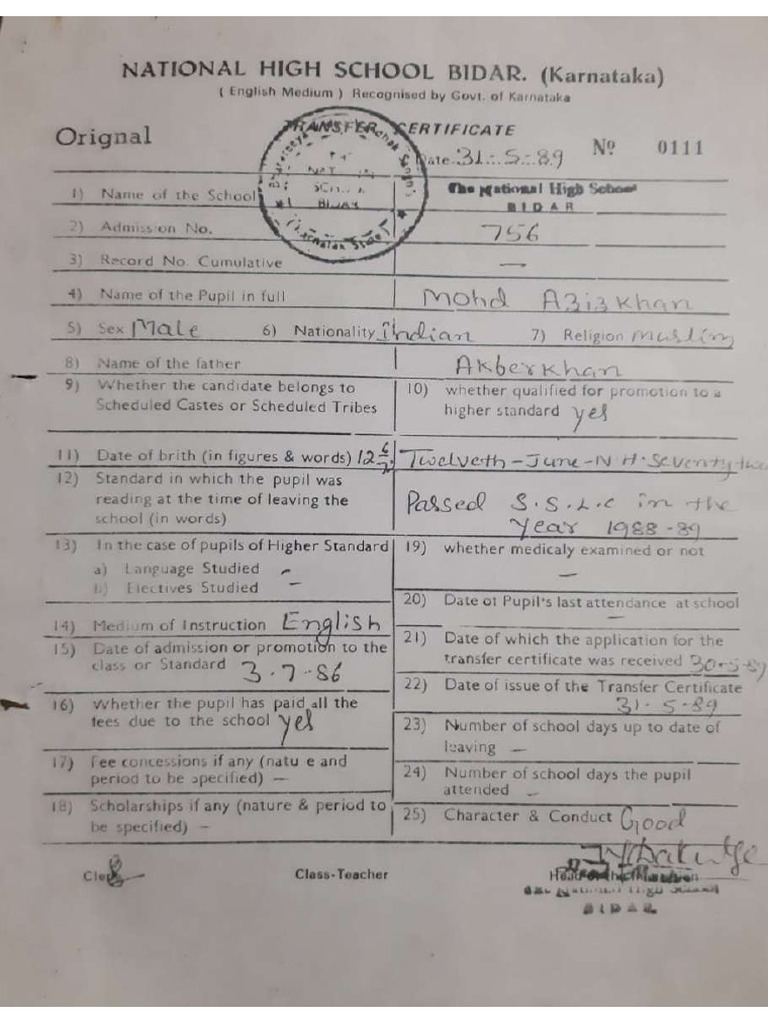 NATIONAL HIGH SCHOOL BIDAR. (Karnataka)
( English Medium ) Recognised by Govt. of Karnataka
Orignal
TRANSFER CERTIFICATE
Date 31.5.89
No 0111
1) Name of the School
The National High School
BIDAR
2) Admission No.
756
3) Record No. Cumulative
—
4) Name of the Pupil in full
Mohd Aziz khan
5) Sex Male 6) Nationality Indian 7) Religion muslim
8) Name of the father
Akber khan
9) Whether the candidate belongs to
Scheduled Castes or Scheduled Tribes
10) whether qualified for promotion to a
higher standard yes
11) Date of brith (in figures & words) 12 6/72 Twelveth - June - N H. Seventy two
12) Standard in which the pupil was
reading at the time of leaving the
school (in words)
Passed S.S.L.C in the
year 1988-89
13) In the case of pupils of Higher Standard
a) Language Studied —
b) Electives Studied —
14) Medium of Instruction English
15) Date of admission or promotion to the
class or Standard 3.7.86
16) Whether the pupil has paid all the
fees due to the school yes
17) Fee concessions if any (natu e and
period to be specified) —
18) Scholarships if any (nature & period to
be specified) —
19) whether medicaly examined or not
—
20) Date of Pupil's last attendance at school
—
21) Date of which the application for the
transfer certificate was received 30-5-89
22) Date of issue of the Transfer Certificate
31.5.89
23) Number of school days up to date of
leaving —
24) Number of school days the pupil
attended —
25) Character & Conduct Good
Clerk
Class-Teacher
National High School
BIDAR